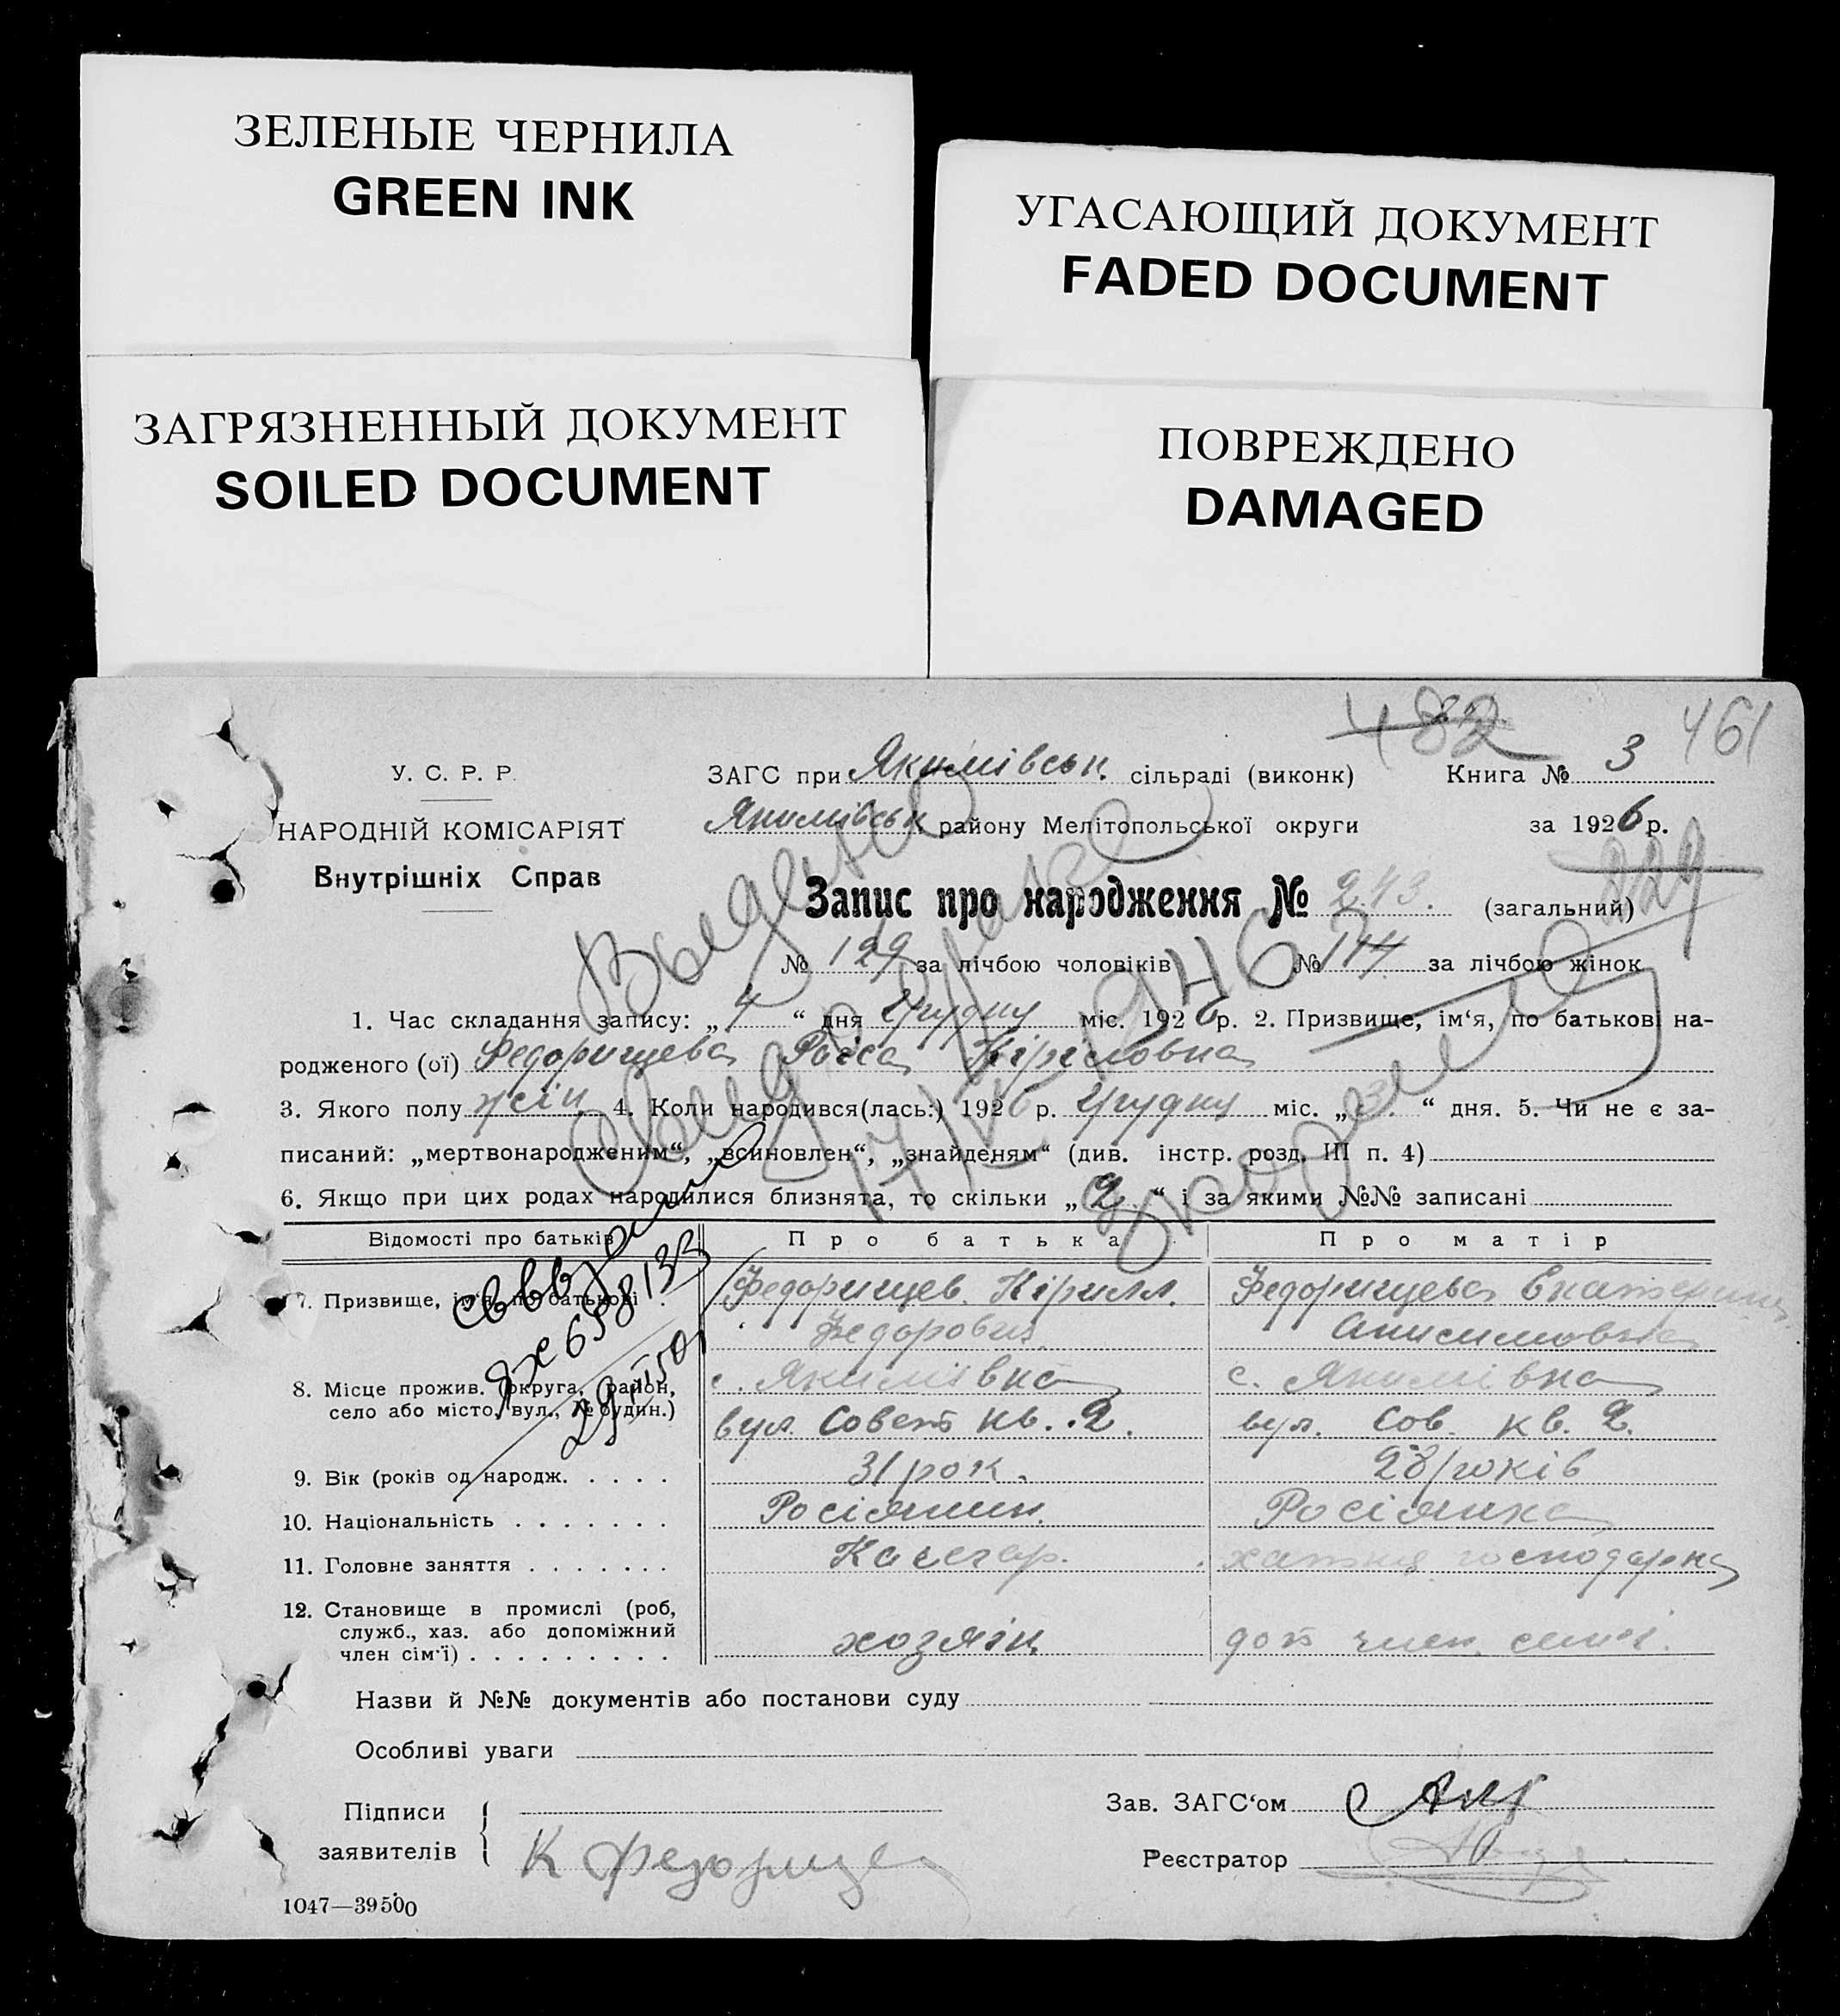 ЗЕЛЕНЫЕ ЧЕРНИЛА
GREEN INK
УГАСАЮЩИЙ ДОКУМЕНТ
FADED DOCUMENT
ЗАГРЯЗНЕННЫЙ ДОКУМЕНТ
SOILED DOCUMENT
ПОВРЕЖДЕНО
DAMAGED
482 461
У. С. Р. Р.
НАРОДНІЙ КОМІСАРІЯТ
Внутрішніх Справ
ЗАГС при Якимівськ. сільраді (виконк) Книга № 3
Якимівськ району Мелітопольської округи за 1926 р.
Запис про народження № 243. (загальний)
229
№ 129 за лічбою чоловіків № 114 за лічбою жінок
1. Час складання запису: „4“ дня Грудня міс. 1926 р. 2. Призвище, ім‘я, по батькові на-
родженого (ої) Федорищева Раіса Кіріловна
3. Якого полу жін 4. Коли народився(лась:) 1926 р. Грудня міс. „3.“ дня. 5. Чи не є за-
писаний: „мертвонародженим“, „всиновлен“, „знайденям“ (див. інстр. розд. III п. 4)
6. Якщо при цих родах народилися близнята, то скільки „2“ і за якими №№ записані
Выдано
1946
Відомості про батьків Про батька Про матір
7. Призвище, ім‘я, по батькові Федорищев Кірилл Федорищева Екатерина
Федорович Анисимовна
8. Місце прожив. (округа, район, с. Якимівка с. Якимівка
село або місто, вул., № будин.) вул. Совет кв. 2. вул. Сов. кв. 2.
9. Вік (років од народж. 31 рок. 28 років
10. Національність Росіянин. Росіянка
11. Головне заняття Качегар. хатня господарка
12. Становище в промислі (роб,
служб., хаз. або допоміжний
член сім‘ї) хозяін доп член. сем'і.
Назви й №№ документів або постанови суду
Особливі уваги
Підписи
заявителів
К Федорищев
Зав. ЗАГС‘ом
Реєстратор
1047—39500